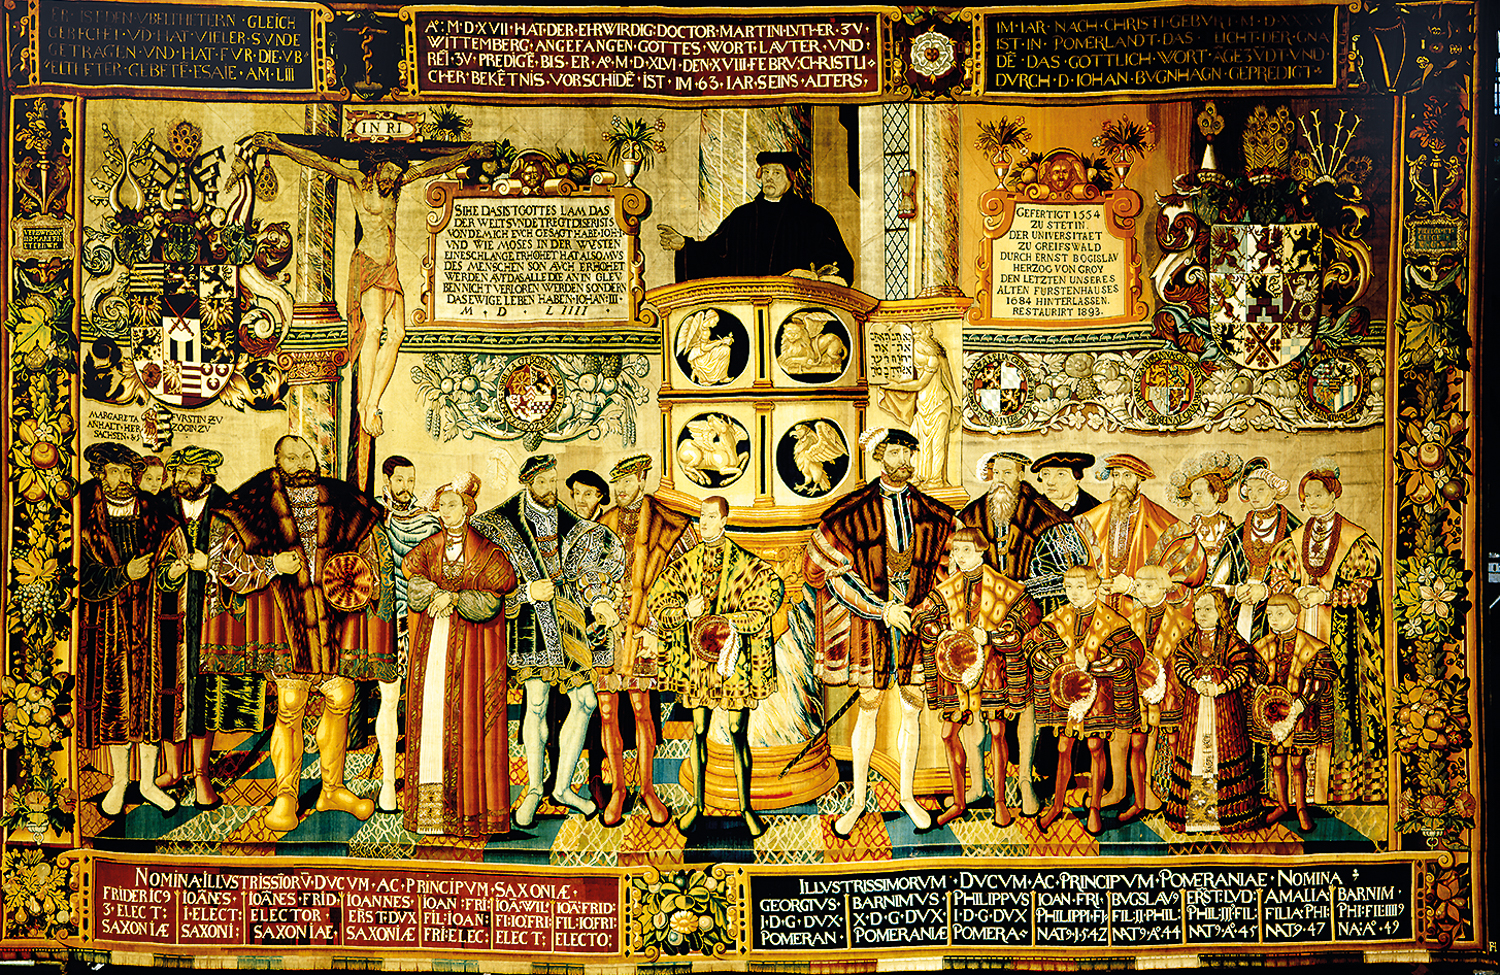 ER·IST·DEN·VBELTHETERN·GLEICH
GERECHET·VD·HAT·VIELER·SVNDE
GETRAGEN·VND·HAT·FVR·DIE·VB
ELTHETER·GEBETĒ·ESAIE·AM·LIII
A°·M·D·XVII·HAT·DER·EHRWIRDIG·DOCTOR·MARTINI·LVTHER·ZV·
WITTEMBERG·ANGEFANGEN·GOTTES·WORT·LAVTER·VND·
REI·ZV·PREDIGĒ·BIS·ER·A°·M·D·XLVI·DEN·XVIII·FEBRV:CHRISTLI
CHER·BEKĒTNIS·VORSCHIDĒ·IST·IM·63·IAR·SEINS·ALTERS,
IM·IAR·NACH·CHRISTI·GEBVRT·M·D·XXXV
IST·IN·POMERLANDT·DAS·LICHT·DER·GNA
DĒ·DAS·GOTTLICH·WORT·AGEZVDT·VND
DVRCH·D·IOHAN·BVGNHAGN·GEPREDIGT·
INRI
SIHE DAS IST GOTTES LAM DAS
DER WELT SVNDE TREGT DISER IST S
VON DEM ICH EVCH GESAGT HABE·IOH·I·
VND WIE MOSES IN DER WVSTEN
EINE SCHLANGE ERHOHET HAT ALSO MVS
DES MENSCHEN SON AVCH ERHOHET
WERDEN AVF DAS ALLE DIE AN IN GLEV
BEN NICHT VERLOREN WERDEN SONDERN
DAS EWIGE LEBEN HABEN·IOHAN·III·
M · D · LIIII ·
GEFERTIGT 1554
ZU STETIN.
DER UNIVERSITAET
ZU GREIFSWALD
DURCH ERNST BOGISLAV
HERZOG VON CROY
DEN LETZTEN UNSERES
ALTEN FURSTENHAUSES
1684 HINTERLASSEN.
RESTAURIRT 1893.
MARGARETA FVRSTIN ZV
ANHALT·HER ZOGIN ZV
SACHSEN
NOMINA·ILLVSTRISSIORV̄·DVCVM·AC·PRINCIPVM·SAXONIÆ·
FRIDERIC9 3·ELECT: SAXONIÆ
IOĀNES· I·ELECT: SAXONI:
IOĀNES·FRID: ELECTOR SAXONIAE
IOANNES· ERST·DVX SAXONIAE
IOAN:FRI: FIL:IOAN: FRI:ELEC:
IOĀ·WIL: FI:IO:FRI: ELECT:
IOĀ:FRID: FIL:IO:FRI: ELECTO:
ILLVSTRISSIMORVM·DVCVM·AC·PRINCIPVM·POMERANIAE·NOMINA
GEORGIVS· I·D·G·DVX· POMERAN·
BARNIMVS· X·D·G·DVX· POMERANIÆ
PHILIPPVS I·D·G·DVX POMERA·
IOAN·FRI· PHILIPPI·FI· NAT9·1542
BVGSLAV9 FIL·II·PHIL· NAT9·A°·44
ERST:LVD: PHIL·III·FIL: NAT9·A°·45
AMALIA FILIA·PHI: NAT9·47
BARNIM· PHI·FI:IIII9 NA:A°·49